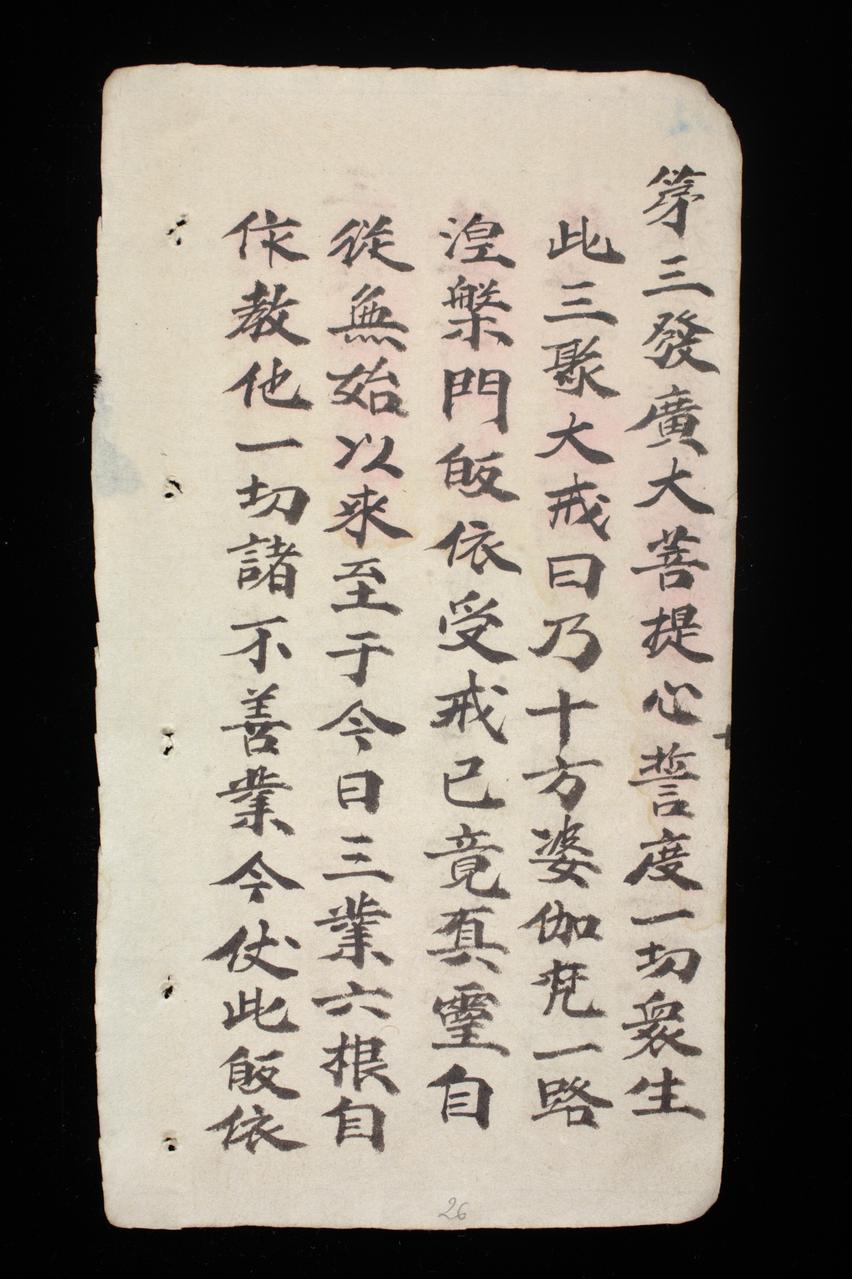 第三發廣大菩提心誓度一切衆生
此三聚大戒曰乃十方婆伽梵一路
湼槃門皈依受戒已竟真霊自
從無始以來至于今日三業六根自
作教他一切諸不善業今仗此皈依
26